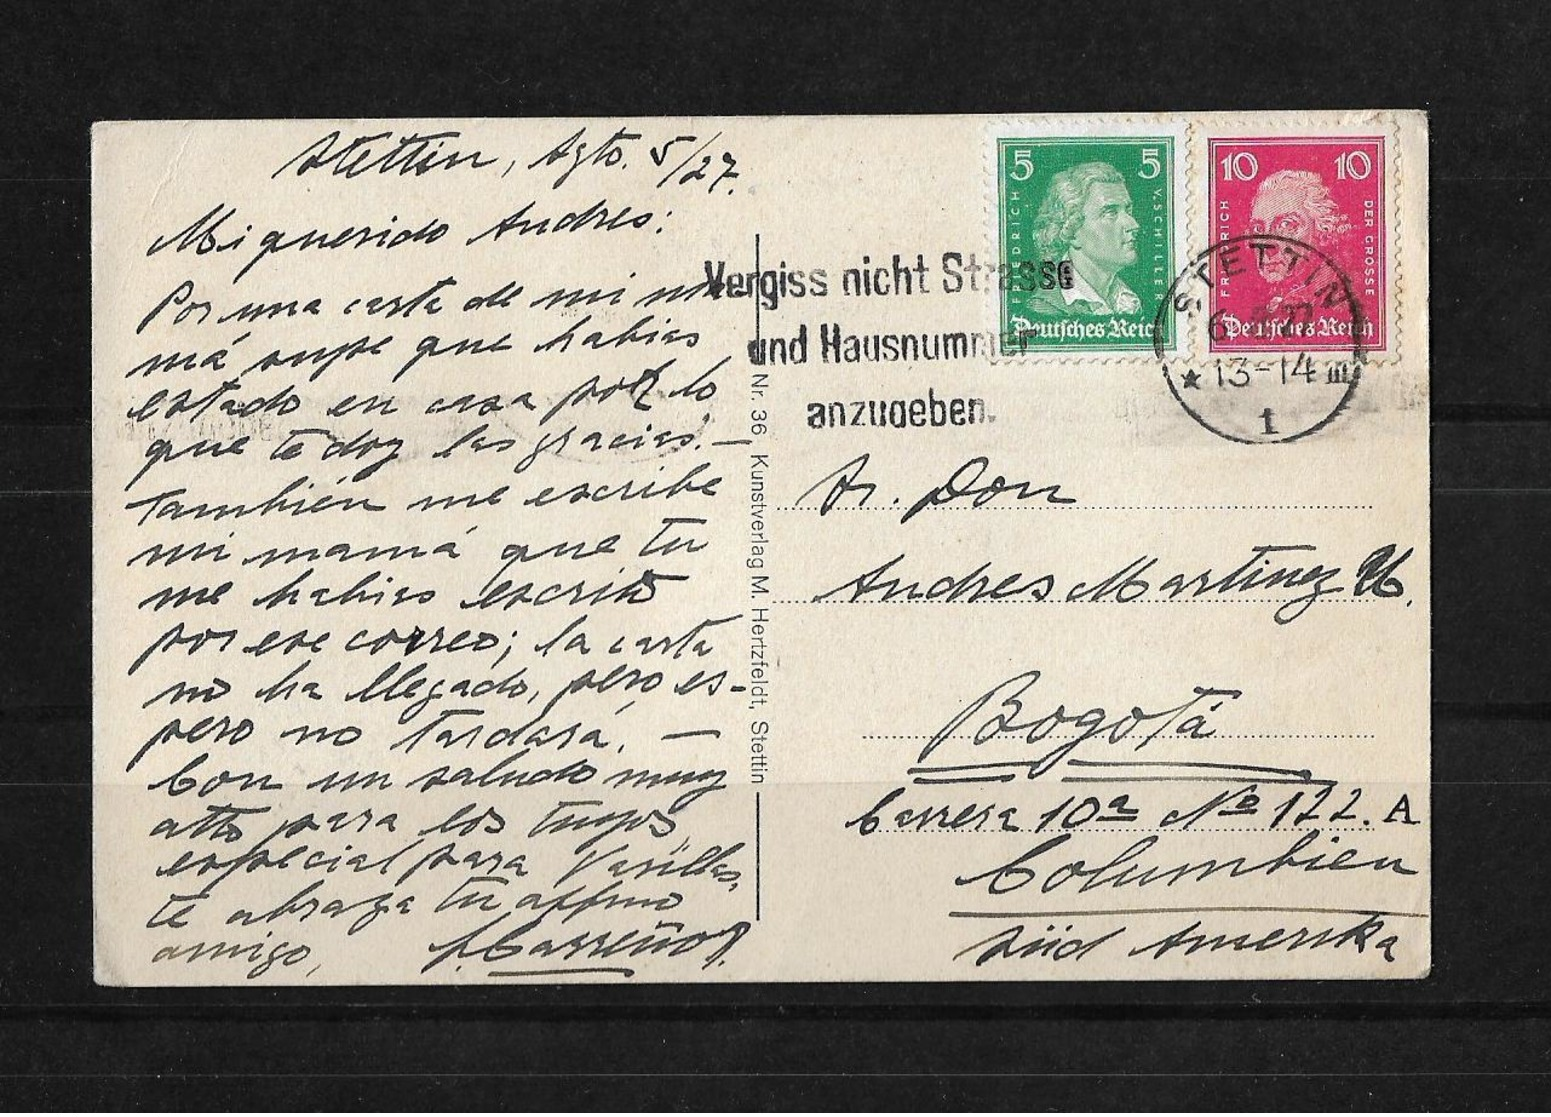 Stettin, Agto. 5/27.
Mi querido Andres:
Por una carta de mi ma-
má supe que habias
estado en casa por lo
que te doy las gracias.—
También me escribe
mi mamá que tu
me habias escrito
por ese correo; la carta
no ha llegado, pero es-
pero no tardará. —
Con un saludo muy
atto para los tuyos
especial para
te abraza tu affmo
amigo,
Nr. 36 Kunstverlag M. Hertzfeldt, Stettin
5 5
FRIEDRICH V. SCHILLER
Deutsches Reich
10 10
FRIEDRICH DER GROSSE
Deutsches Reich
Vergiss nicht Strasse
und Hausnummer
anzugeben.
STETTIN
* 13-14 III
1
Sr. Don
Andres Martinez
Bogotá
Carrera 10a No 122. A
Columbien
Süd Amerika